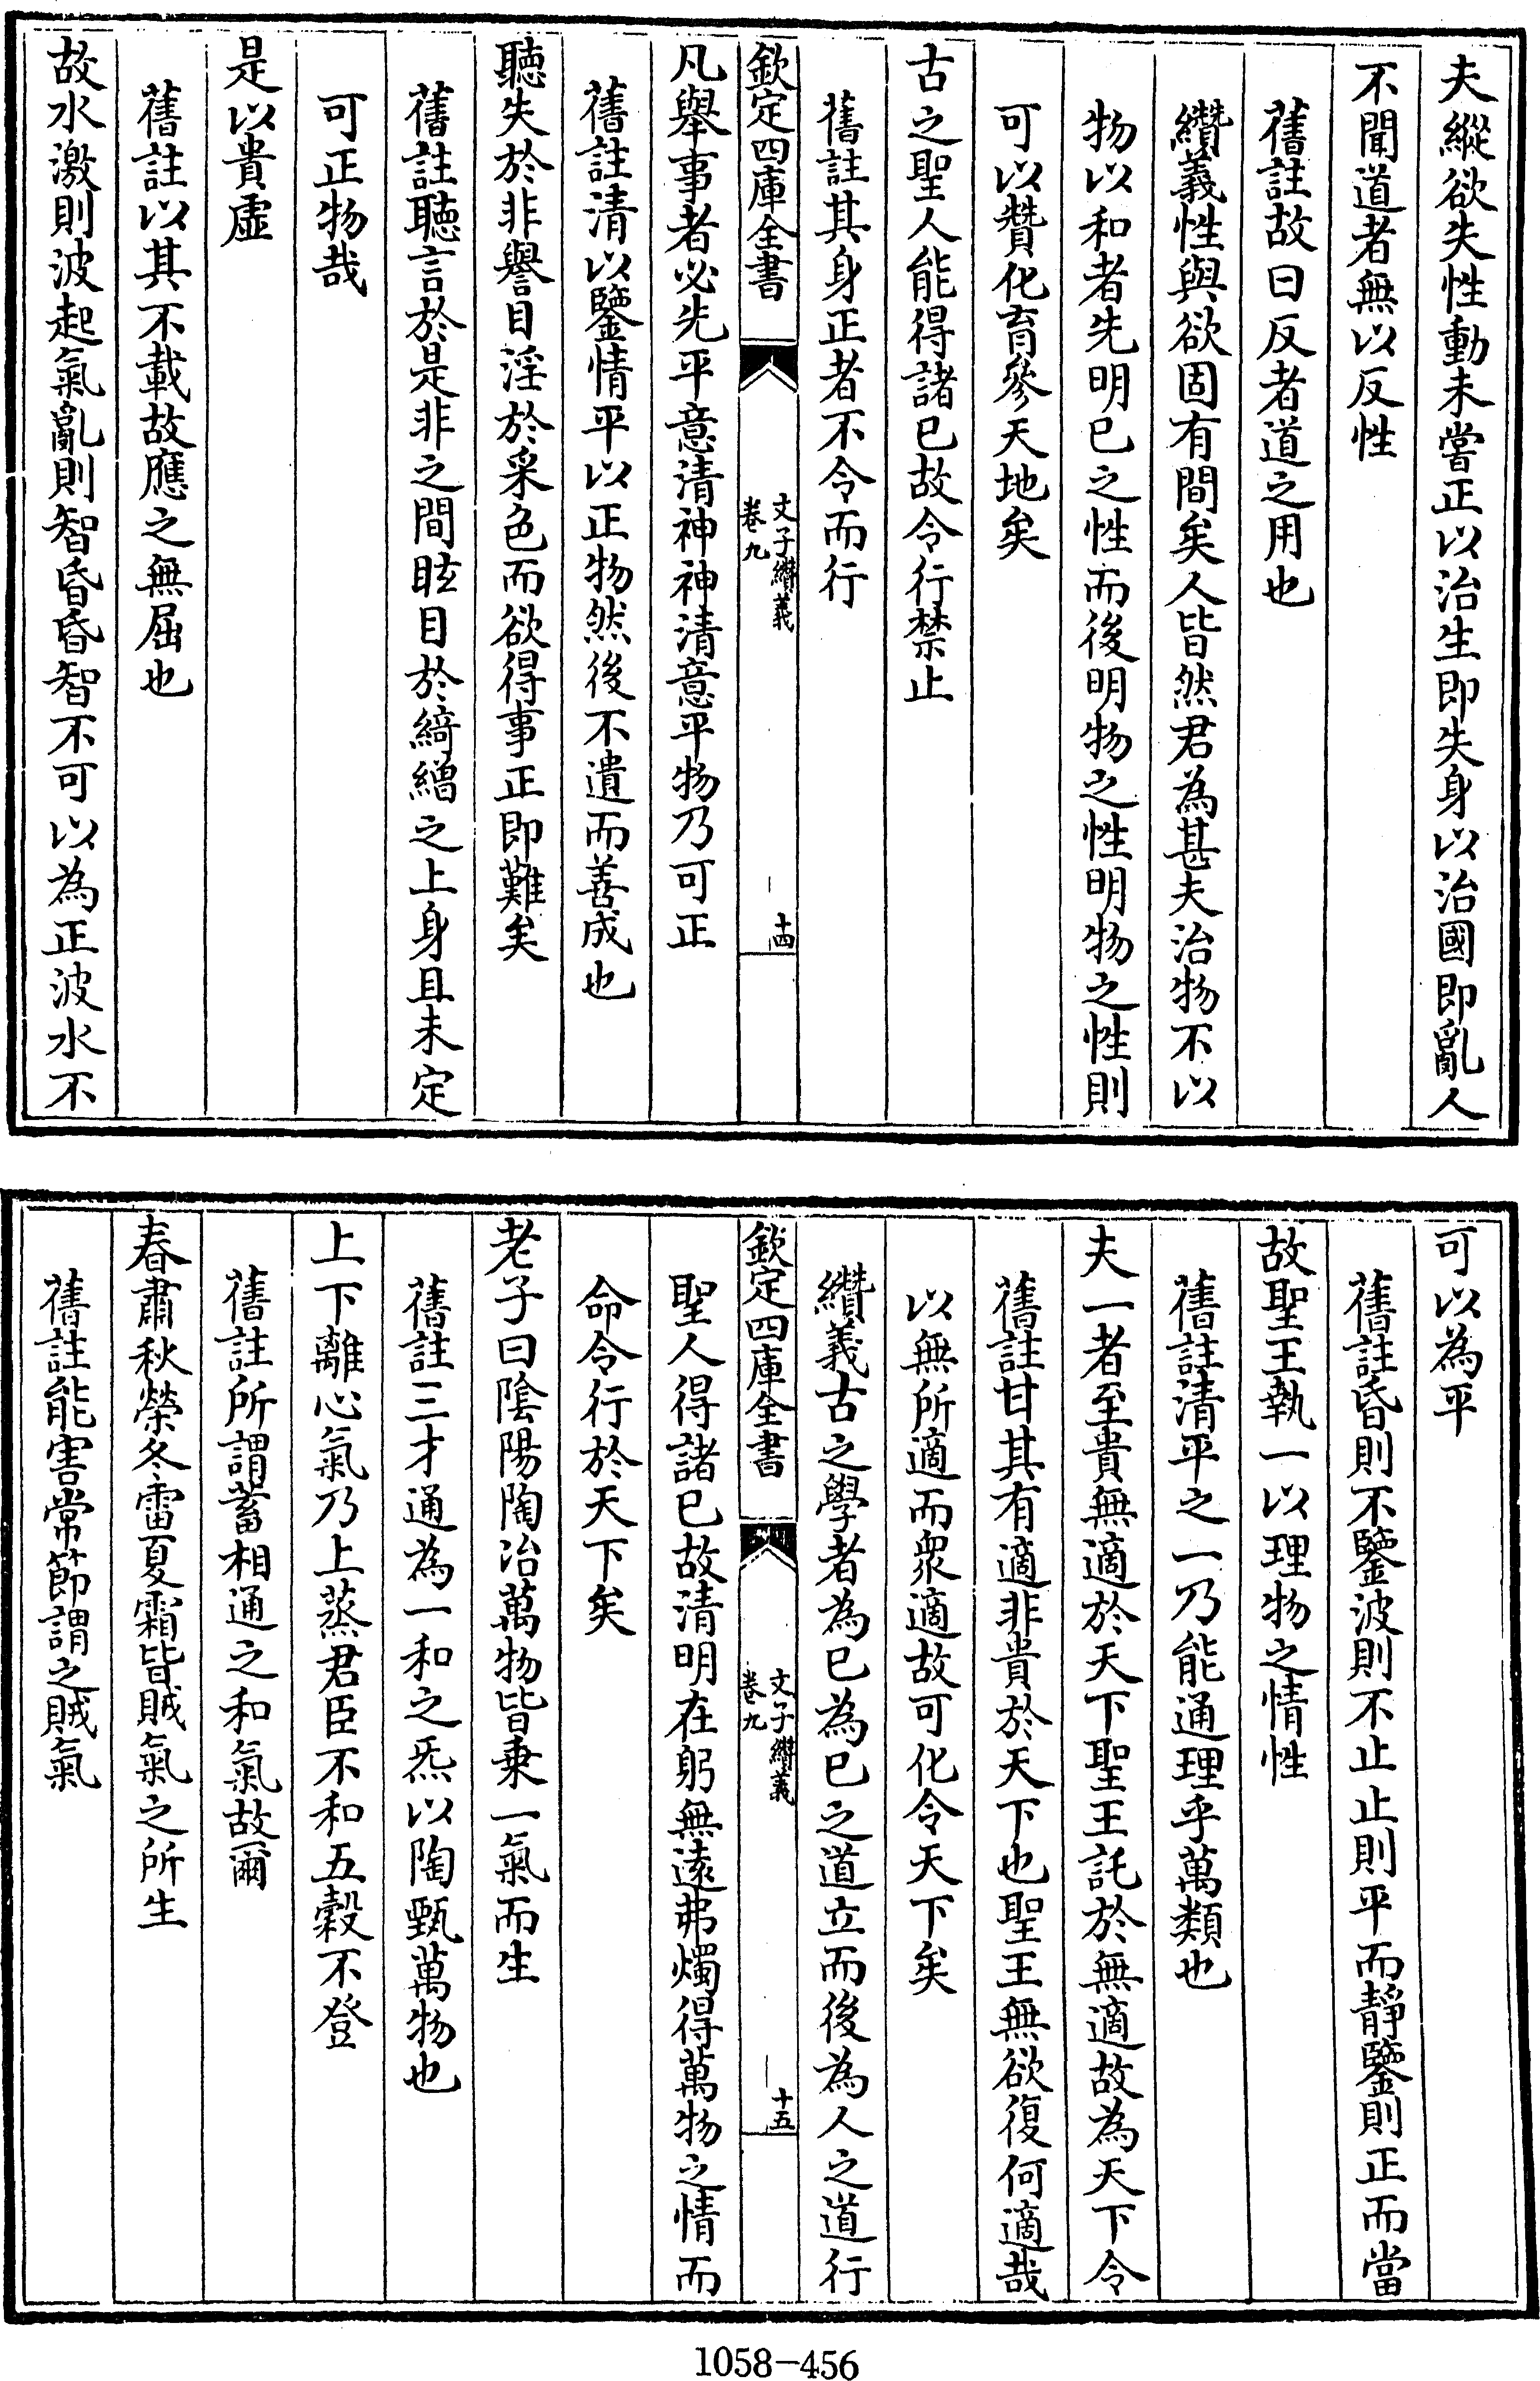 夫縱欲失性動未嘗正以治生即失身以治國即亂人
不聞道者無以反性
舊註故曰反者道之用也
纘義性與欲固有間矣人皆然君為甚夫治物不以
物以和者先明已之性而後明物之性明物之性則
可以贊化育參天地矣
古之聖人能得諸已故令行禁止
舊註其身正者不令而行
欽定四庫全書
文子纘義
卷九
十四
凡舉事者必先平意清神神清意平物乃可正
舊註清以鑒情平以正物然後不遺而善成也
聽失於非譽目淫於采色而欲得事正即難矣
舊註聽言於是非之間眩目於綺繒之上身且未定
可正物哉
是以貴虛
舊註以其不載故應之無屈也
故水激則波起氣亂則智昏昏智不可以為正波水不
可以為平
舊註昏則不鑒波則不止止則平而靜鑒則正而當
故聖王執一以理物之情性
舊註清平之一乃能通理乎萬類也
夫一者至貴無適於天下聖王託於無適故為天下令
舊註甘其有適非貴於天下也聖王無欲復何適哉
以無所適而衆適故可化令天下矣
纘義古之學者為已為已之道立而後為人之道行
欽定四庫全書
文子纘義
卷九
十五
聖人得諸已故清明在躬無遠弗燭得萬物之情而
命令行於天下矣
老子曰陰陽陶冶萬物皆乗一氣而生
舊註三才通為一和之炁以陶甄萬物也
上下離心氣乃上蒸君臣不和五穀不登
舊註所謂蓄相通之和氣故爾
春肅秋榮冬雷夏霜皆賊氣之所生
舊註能害常節謂之賊氣
1058-456